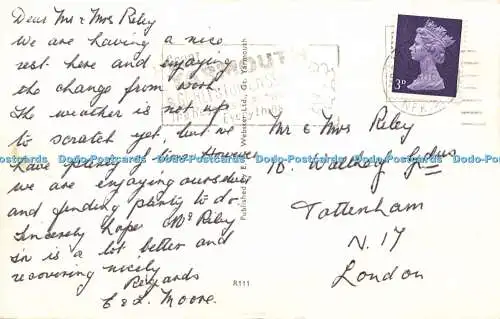 Dear Mr & Mrs Riley
We are having a nice
rest here and enjoying
the change from work
The weather is not up
to scratch yet, but we
have plenty of time. However
we are enjoying ourselves
and finding plenty to do.
Sincerely hope Mr Riley
Snr is a lot better and
recovering nicely
Regards
E & L. Moore.
Published by E. A. Webster Ltd., Gt. Yarmouth
R111
YARMOUTH
3D
Mr & Mrs Riley
10. Walthof Gdns
Tottenham
N. 17
London
Do-Postcards Do-Postcards Do-Postcards Do-Postcards Do-Postcards